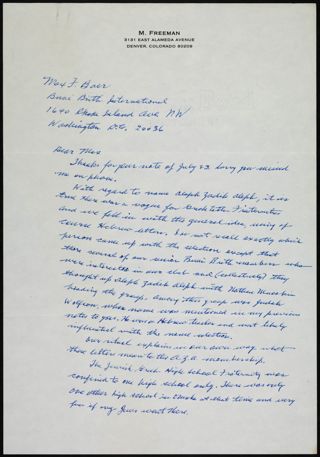 M. FREEMAN
3131 EAST ALAMEDA AVENUE
DENVER, COLORADO 80209
Max F. Baer
Bnai Brith International
1640 Rhode Island Ave NW
Washington D.C. 20036
Dear Max
Thanks for your note of July 23. Sorry you missed
me on phone.
With regard to name Aleph Zadik Aleph, it is
true there was a vogue for Greek letter Fraternities
and we fell in with the general idea, using of
course Hebrew letters. I do not recall exactly which
person came up with the selection except that
there several of our senior Bnai Brith members who
were interested in our club and (collectively) they
thought up Aleph Zadik Aleph with Nathan
heading the group. Among this group was
Wolfson whose name was mentioned in my previous
notes to you. He was a Hebrew teacher and most likely
influential with the name selection.
Our ritual explains in our own way what
these letters mean to the A.Z.A. membership.
The Jewish Greek High School Fraternity was
confined to one high school only. There was only
one other high school in Omaha at that time and very
few if any Jews went there.